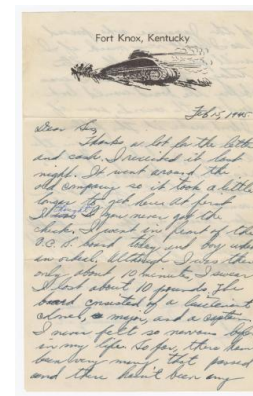 Fort Knox, Kentucky
Feb 15, 1945
Dear Sis,
Thanks a lot for the letter
and cash. I received it last
night. It went around the
old company so it took a little
longer to get here. At first
I you never got the
check. I went in front of the
O.C.S. board today and boy
. Although I was there
only about 10 minutes, I swear
I lost about 10 pounds. The
board consisted of a lieutenant
colonel, a major, and a captain.
I never felt so nervous before
in my life. So far, there have
been very many that passed
and there hasn't been any